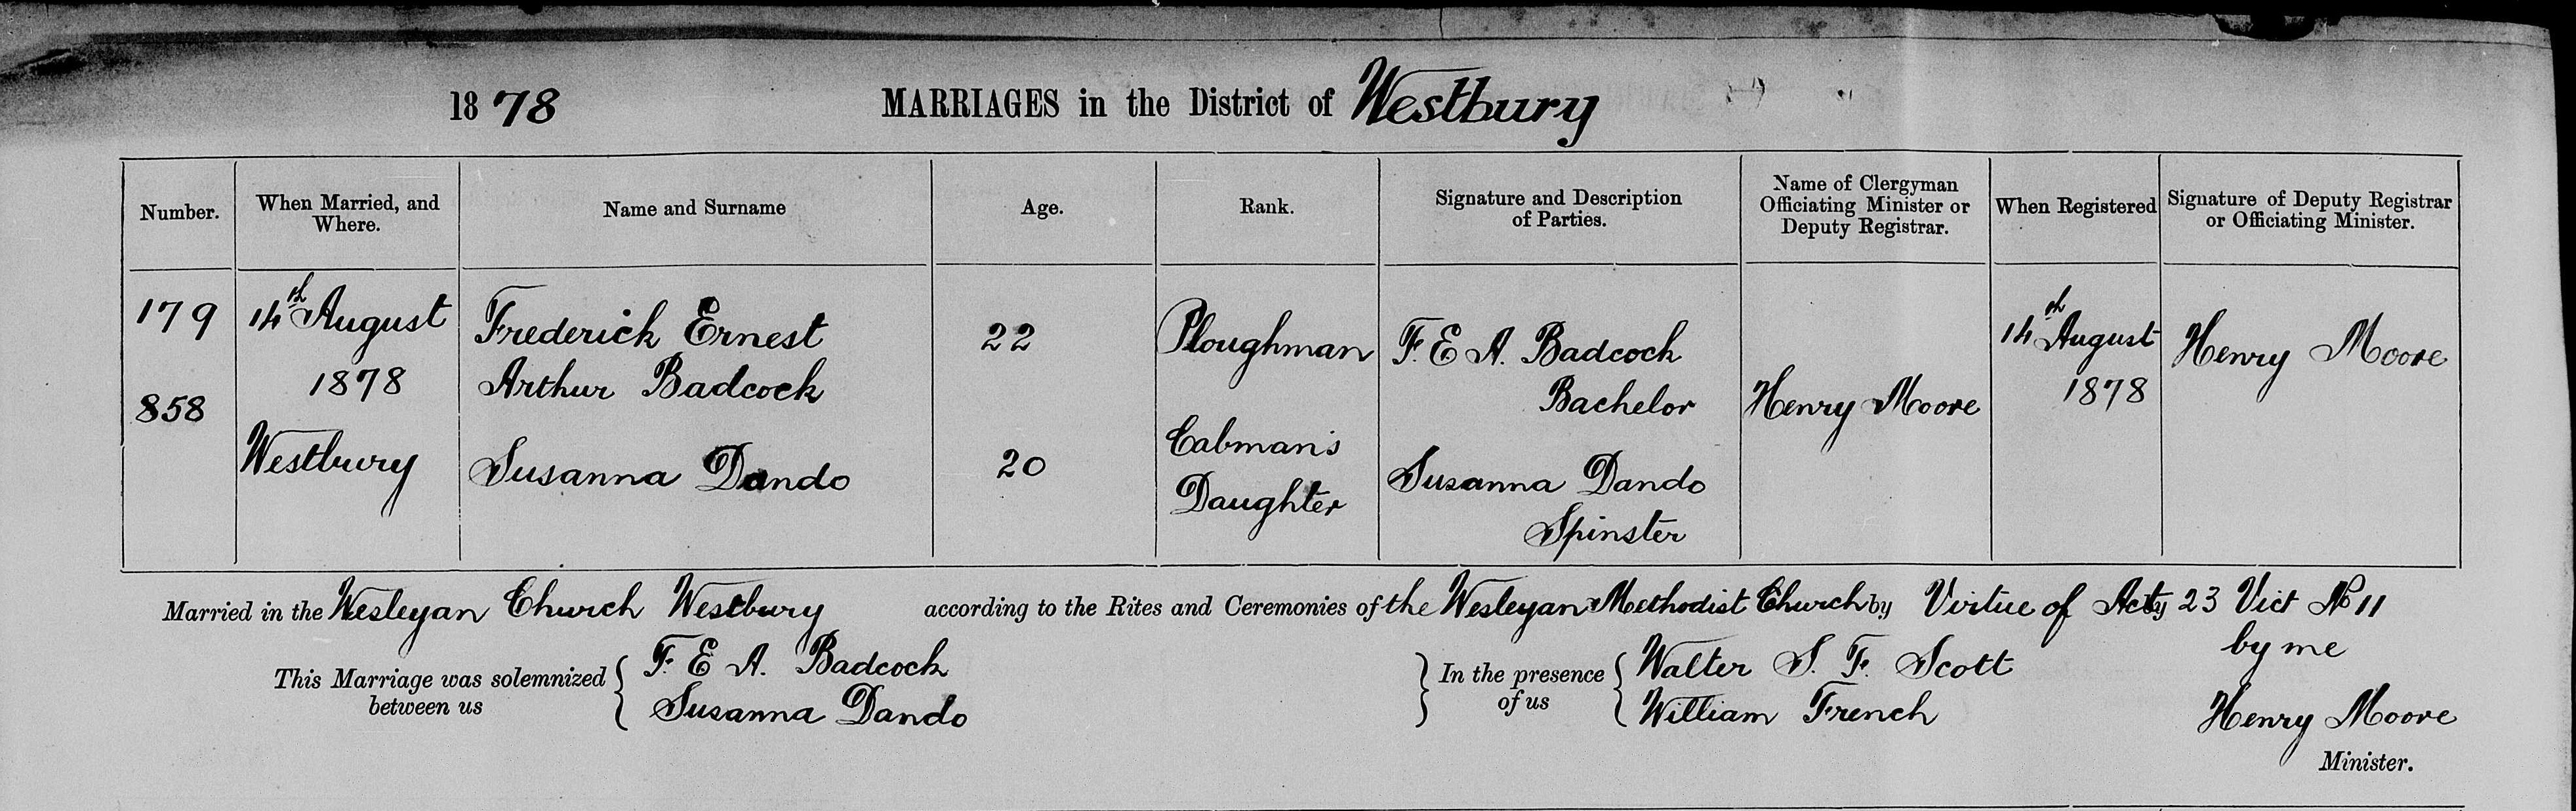 1878 MARRIAGES in the District of Westbury
Number. When Married, and Where. Name and Surname Age. Rank. Signature and Description of Parties. Name of Clergyman Officiating Minister or Deputy Registrar. When Registered Signature of Deputy Registrar or Officiating Minister.
179 14th August Frederick Ernest 22 Ploughman F. E A. Badcock 14th August Henry Moore
858 1878 Arthur Badcock Bachelor Henry Moore 1878
Westbury Susanna Dando 20 Cabman's Daughter Susanna Dando
Spinster
Married in the Wesleyan Church Westbury according to the Rites and Ceremonies of the Wesleyan Methodist Church by Virtue of 23 Vict No 11
by me
This Marriage was solemnized between us { F. E A. Badcock } In the presence of us { Walter S. F. Scott
Susanna Dando William French Henry Moore
Minister.